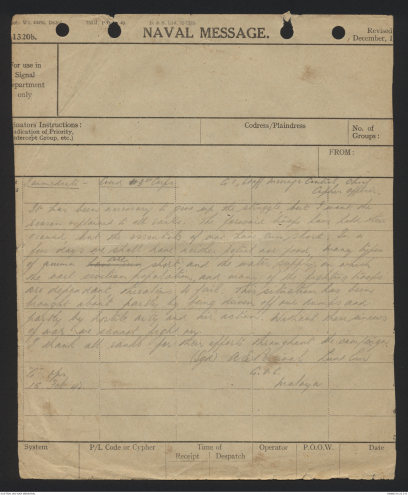 NAVAL MESSAGE.
Revised
December,
For use in
Signal
Department
only
Originators Instructions:
(Indication of Priority,
Intercept Group, etc.)
Codress/Plaindress
No. of
Groups:
FROM:
Immediate
It has been necessary to give up the struggle but I want the
reason explained to all ranks. The forward troops have held their
essentials of war have run short. In
few days we shall have neither petrol nor food. Many types
of ammn short and the water supply on which
the vast civilian population and many of the fighting troops
are dependant threatens to fail. This situation has been
brought about partly by being driven off our dumps and
partly by hostile air and arty action. Without these sinews
of war we cannot fight on.
I thank all ranks for their efforts throughout the campaign.
(Sgd)
G.O.C.
Malaya
15 Feb 42
System
P/L Code or Cypher
Time of
Receipt
Despatch
Operator
P.O.O.W.
Date